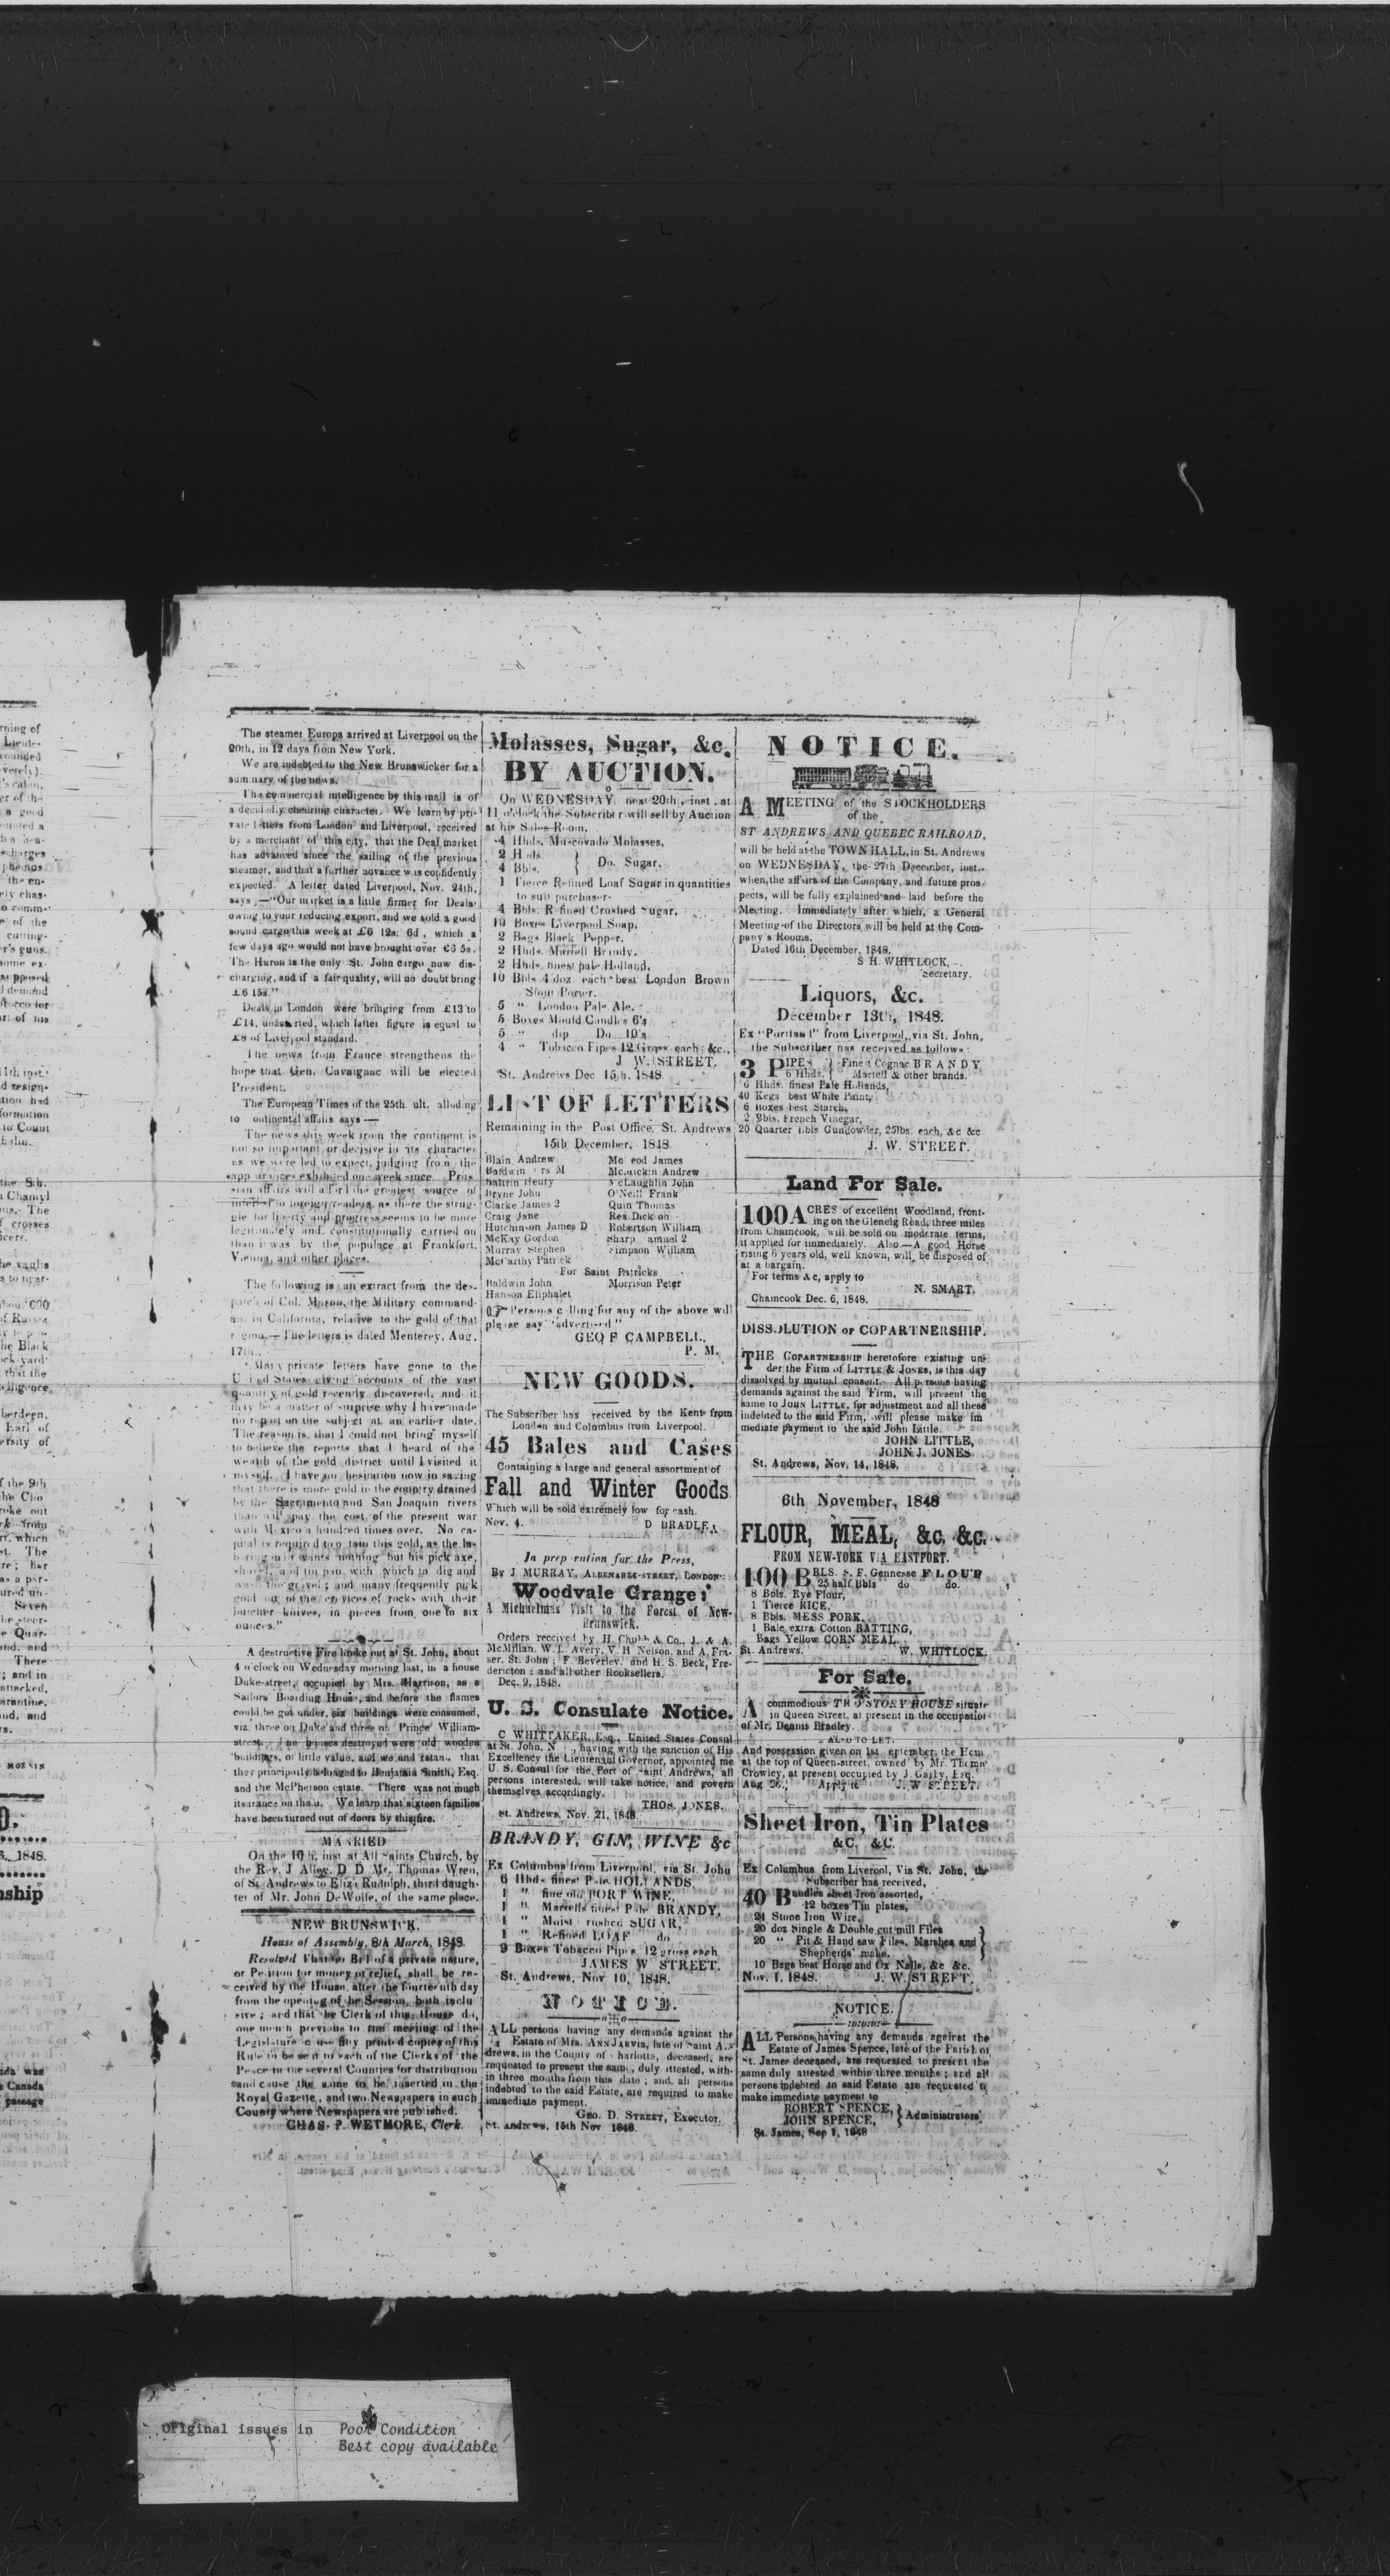 The steamer Europa arrived at Liverpool on the
20th, in 12 days from New York.
We are indebted to the New Brunswicker for a
summary of the news.
The commercial intelligence by this mail is of
a decidedly cheering character. We learn by pri-
vate letters from London and Liverpool, received
by a merchant of this city, that the Deal market
has advanced since the sailing of the previous
steamer, and that a further advance was confidently
expected. A letter dated Liverpool, Nov. 24th,
says ;—"Our market is a little firmer for Deals
owing to your reducing export, and we sold a good
sound cargo this week at £6 12s. 6d, which a
few days ago would not have brought over £6 5s.
The Huron is the only St. John cargo now dis-
charging, and if a fair quality, will no doubt bring
£6 15s."
Deals in London were bringing from £13 to
£14, unassorted, which latter figure is equal to
£8 of Liverpool standard.
The news from France strengthens the
hope that Gen. Cavaignac will be elected
President.
The European Times of the 25th ult. alluding
to ontinental affairs says —
The news this week from the continent is
not so important or decisive in its character
as we were led to expect, judging from the
appearances exhibited one week since. Prus-
sian affairs will afford the greatest source of
interest to foreign readers, as there the strug-
gle for liberty and progress seems to be more
legitimately and constitutionally carried on
than it was by the populace at Frankfort,
Vienna, and other places.
The following is an extract from the des-
patch of Col. Mason, the Military command-
ant in California, relative to the gold of that
region.—The letters is dated Monterey, Aug.
17th.
"Many private letters have gone to the
United States giving accounts of the vast
quantity of gold recently discovered, and it
may be a matter of surprise why I have made
no report on the subject at an earlier date.
The reason is, that I could not bring myself
to believe the reports that I heard of the
wealth of the gold district until I visited it
myself. I have no hesitation now in saying
that there is more gold in the country drained
by the Sacramento and San Joaquin rivers
than will pay the cost of the present war
with Mexico a hundred times over. No ca-
pital is required to obtain this gold, as the la-
boring man wants nothing but his pick axe,
shovel, and tin pan, with which to dig and
wash the gravel ; and many frequently pick
gold out of the crevices of rocks with their
butcher knives, in pieces from one to six
ounces."
A destructive Fire broke out at St. John, about
4 o'clock on Wednesday morning last, in a house
Duke-street, occupied by Mrs. Harrison, as a
Sailors Boarding House, and before the flames
could be got under, six buildings were consumed,
viz. three on Duke and three on Prince William-
street. The houses destroyed were old wooden
buildings, of little value, and we understand that
they principally belonged to Benjamin Smith, Esq.
and the McPherson estate. There was not much
insurance on them. We learn that sixteen families
have been turned out of doors by this fire.
MARRIED
On the 10th, inst at All Saints Church, by
the Rev. J Alley, D D Mr. Thomas Wren,
of St. Andrews to Eliza Rudolph, third daugh-
ter of Mr. John DeWolfe, of the same place.
NEW BRUNSWICK.
House of Assembly, 8th March, 1848.
Resolved That no Bill of a private nature,
or Petition for money or relief, shall be re-
ceived by the House, after the fourteenth day
from the opening of the Session, both inclu-
sive ; and that the Clerk of this House do,
one month previous to the meeting of the
Legislature cause fifty printed copies of this
Rule to be sent to each of the Clerks of the
Peace in the several Counties for distribution
and cause the same to be inserted in the
Royal Gazette, and two Newspapers in such
County where Newspapers are published.
CHAS. P. WETMORE, Clerk.
Molasses, Sugar, &c.
BY AUCTION.
On WEDNESDAY next 20th, inst, at
11 o'clock the Subscriber will sell by Auction
at his Sales Room.
4 Hhds. Muscovado Molasses,
2 Hhds.
4 Bbls. } Do. Sugar,
1 Tierce Refined Loaf Sugar in quantities
to suit purchaser
4 Bbls. Refined Crushed Sugar,
10 Boxes Liverpool Soap,
2 Bags Black Pepper,
2 Hhds. Martell Brandy,
2 Hhds. finest pale Holland,
10 Bbls 4 doz each best London Brown
Stout Porter.
5 " London Pale Ale,
5 Boxes Mould Candles 6's
5 " dip Do 10's
4 " Tobacco Pipes 12 Gross each &c.,
J W. STREET.
St. Andrews Dec 15th. 1848
LIST OF LETTERS
Remaining in the Post Office, St. Andrews
15th December, 1848.
Blain Andrew
Baldwin rs M
Baltrin Henry
Bryne John
Clarke James 2
Craig Jane
Hutchinson James D
McKay Gordon
Murray Stephen
McCarthy Patrick
Mc eod James
McLaughlin John
O'Neill Frank
Quin Thomas
Rea Dickson
Robertson William
Sharp amuel 2
impson William
For Saint Patricks
Baldwin John
Hanson Eliphalet
Morrison Peter
☞ Persons calling for any of the above will
please say "advertised"
GEO F CAMPBELL,
P. M.
NEW GOODS.
The Subscriber has received by the Kent from
London and Columbus from Liverpool.
45 Bales and Cases
Containing a large and general assortment of
Fall and Winter Goods
Which will be sold extremely low for cash.
Nov. 4. D BRADLE
In preparation for the Press,
By J MURRAY, ALBEMARLE-STREET, LONDON:
Woodvale Grange;
A Michaelmas Visit to the Forest of New-
Brunswick.
Orders received by H. Chubb & Co., J. & A.
McMillan, W. L. Avery, V. H Nelson, and A. Fra-
ser. St. John ; F. Beverley, and H. S. Beck, Fre-
dericton ; and all other Booksellers.
Dec. 9, 1848.
U. S. Consulate Notice.
C WHITTAKER, Esq., United States Consul
at St. John, N , having with the sanction of His
Excellency the Lieutenant Governor, appointed me
U. S. Consul for the Port of Saint Andrews, all
persons interested, will take notice, and govern
themselves accordingly.
THOS. JONES.
St. Andrews, Nov. 21, 1848
BRANDY, GIN, WINE &c
Ex Columbus from Liverpool, via St. John
6 Hhds finest Pale HOLLANDS
1 " fine old PORT WINE,
1 " Martells finest Pale BRANDY,
1 " Moist crushed SUGAR,
1 " Refined LOAF do
9 Boxes Tobacco Pipes 12 gross each
JAMES W STREET.
St. Andrews, Nov 10, 1848.
NOTICE.
ALL persons having any demands against the
Estate of Mrs. ANN JARVIS, late of Saint An-
drews, in the County of Charlotte, deceased, are
requested to present the same, duly attested, with-
in three months from this date ; and all persons
indebted to the said Estate, are required to make
immediate payment.
GEO. D. STREET, Executor.
St. Andrews, 15th Nov 1848.
NOTICE.
A MEETING of the STOCKHOLDERS
of the
ST ANDREWS AND QUEBEC RAILROAD,
will be held at the TOWN HALL, in St. Andrews
on WEDNESDAY, the 27th December, inst.
when, the affairs of the Company, and future pros-
pects, will be fully explained and laid before the
Meeting. Immediately after which, a General
Meeting of the Directors will be held at the Com-
pany's Rooms.
Dated 16th December, 1848.
S H. WHITLOCK,
Secretary.
Liquors, &c.
December 13th, 1848.
Ex "Portland" from Liverpool, via St. John,
the Subscriber has received as follows:
3 PIPES
6 Hhds. } Finest Cognac BRANDY
Martell & other brands.
6 Hhds. finest Pale Hollands,
40 Kegs best White Paint,
6 Boxes best Starch,
2 Bbls. French Vinegar,
20 Quarter Bbls Gunpowder, 25lbs. each, &c &c
J. W. STREET.
Land For Sale.
100 ACRES of excellent Woodland, front-
ing on the Glenelg Road, three miles
from Chamcook, will be sold on moderate terms,
if applied for immediately. Also—A good Horse
rising 6 years old, well known, will be disposed of
at a bargain.
For terms &c, apply to
N. SMART.
Chamcook Dec. 6, 1848.
DISSOLUTION OF COPARTNERSHIP.
THE COPARTNERSHIP heretofore existing un-
der the Firm of LITTLE & JONES, is this day
dissolved by mutual consent. All persons having
demands against the said Firm, will present the
same to JOHN LITTLE, for adjustment and all these
indebted to the said Firm, will please make im
mediate payment to the said John Little.
JOHN LITTLE,
JOHN J. JONES
St. Andrews, Nov. 14, 1848.
6th November, 1848
FLOUR, MEAL, &c, &c.
FROM NEW-YORK VIA EASTPORT.
100 BBLS. S. F. Gennesse FLOUR
25 half Bbls do do.
8 Bbls. Rye Flour,
1 Tierce RICE,
8 Bbls. MESS PORK,
1 Bale extra Cotton BATTING,
Bags Yellow CORN MEAL.
St. Andrews. W. WHITLOCK.
For Sale.
A commodious TWO STORY HOUSE situate
in Queen Street, at present in the occupation
of Mr. Dennis Bradley.
ALSO TO LET.
And possession given on 1st eptember, the House
at the top of Queen-street, owned by Mr. Thomas
Crowley, at present occupied by J. Gathy, Esq.
Aug. Apply to J. W STREET.
Sheet Iron, Tin Plates
&C, &C.
Ex Columbus from Liverool, Via St. John, the
Subscriber has received,
40 Bundles sheet Iron assorted,
12 boxes Tin plates,
24 Stone Iron Wire,
20 doz Single & Double cut mill Files
20 " Pit & Hand saw Files, Marshes and
Shepherds' make.
10 Bags best Horse and Ox Nails, &c &c.
Nov. 1, 1848. J. W. STREET.
NOTICE.
ALL Persons having any demands against the
Estate of James Spence, late of the Parish of
St. James deceased, are requested to present the
same duly attested within three months ; and all
persons indebted to said Estate are requested to
make immediate payment to
ROBERT SPENCE,
JOHN SPENCE, } Administrators
St. James, Sep 1, 1848
Original issues in Poor Condition
Best copy available